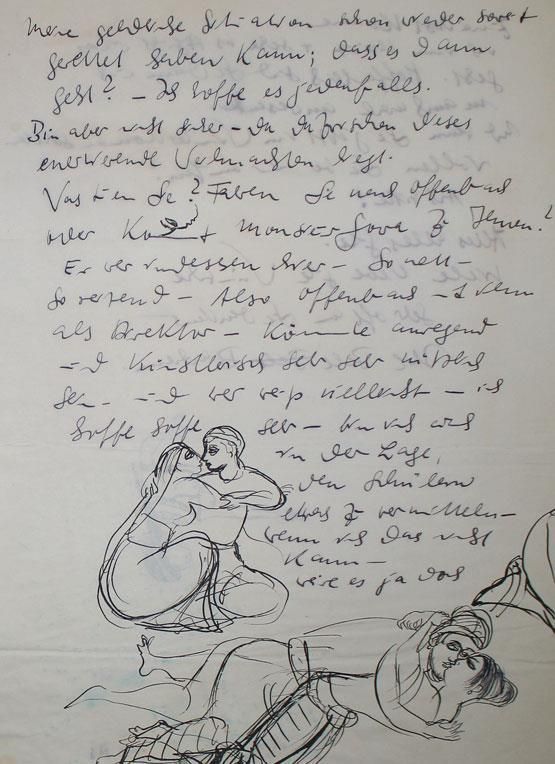 meine geldliche Situation schon wieder soweit
gerettet haben kann; dass es dann
geht? – Ich hoffe es jedenfalls.
Bin aber nicht sicher – da dazwischen dieses
enervierende Weihnachten liegt.
Was tun Sie? Fahren Sie nach Offenbach
oder Monsieur zu Ihnen?
Er war indessen hier – so nett –
so reizend – Also Offenbach – und dann
als Direktor – könnte anregend
und künstlerisch sehr sehr nützlich
sein – und wer weiss vielleicht – ich
hoffe hoffe sehr – bin ich auch
in der Lage,
den Schülern
etwas zu vermitteln –
wenn ich das nicht
kann –
wäre es ja doch